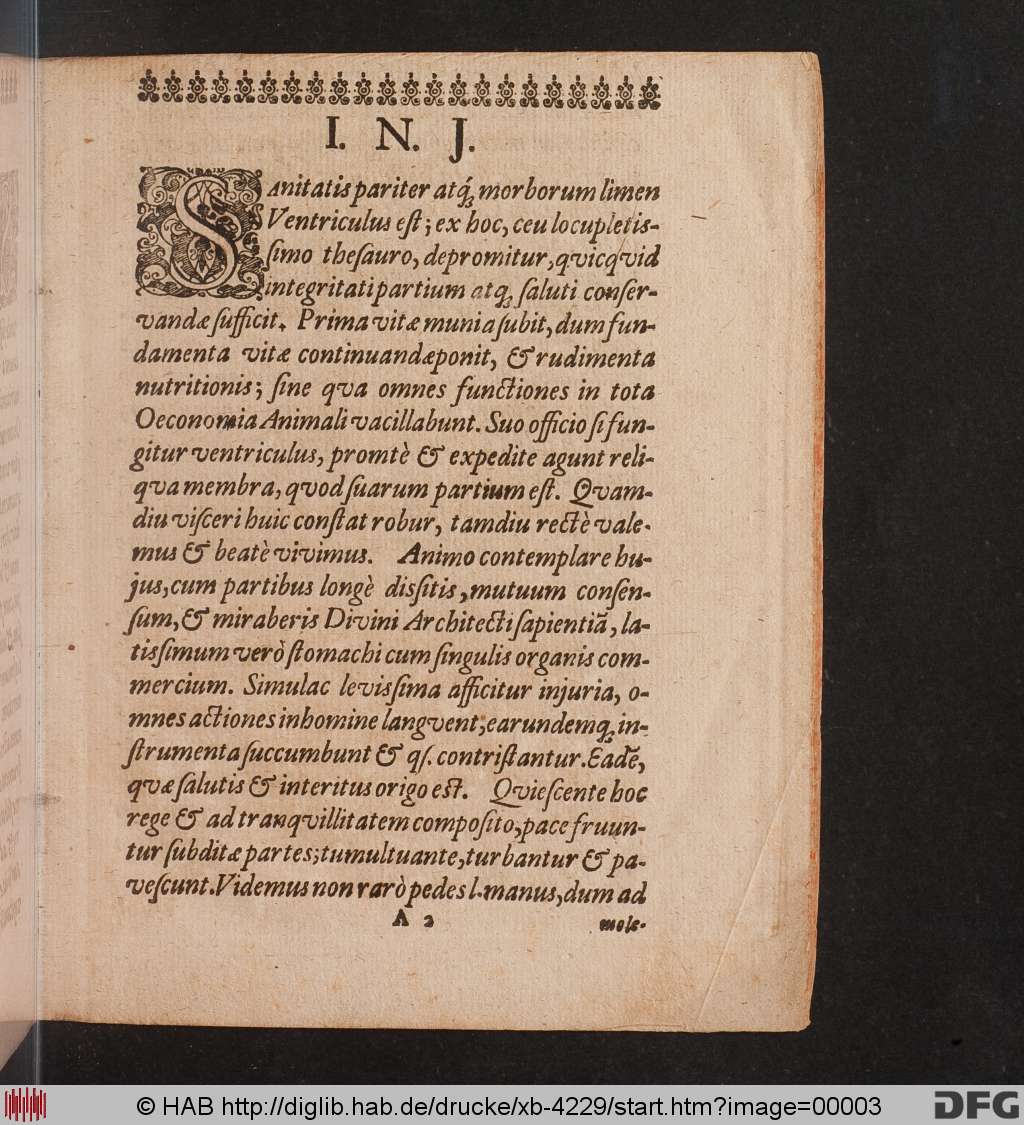 I. N. J.
SAnitatis pariter atq́; morborum limen
Ventriculus eſt; ex hoc, ceu locupletis-
ſimo theſauro, depromitur, qvicqvid
integritati partium atq; ſaluti conſer-
vandæ ſufficit. Prima vitæ munia ſubit, dum fun-
damenta vitæ continuandæ ponit, & rudimenta
nutritionis; ſine qva omnes functiones in tota
Oeconomia Animali vacillabunt. Suo officio ſi fun-
gitur ventriculus, promtè & expedite agunt reli-
qva membra, qvod ſuarum partium eſt. Qvam-
diu viſceri huic conſtat robur, tamdiu rectè vale-
mus & beatè vivimus. Animo contemplare hu-
jus, cum partibus longè disſitis, mutuum conſen-
ſum, & miraberis Divini Architecti ſapientiã, la-
tisſimum verò ſtomachi cum ſingulis organis com-
mercium. Simulac levisſima afficitur injuria, o-
mnes actiones in homine langvent; earundemq; in-
ſtrumenta ſuccumbunt & qſ. contriſtantur. Eadẽ,
qvæ ſalutis & interitus origo eſt. Qvieſcente hoc
rege & ad tranqvillitatem compoſito, pace fruun-
tur ſubditæ partes; tumultuante, turbantur & pa-
veſcunt. Videmus non rarò pedes l. manus, dum ad
A 2 mole-
© HAB http://diglib.hab.de/drucke/xb-4229/start.htm?image=00003
DFG